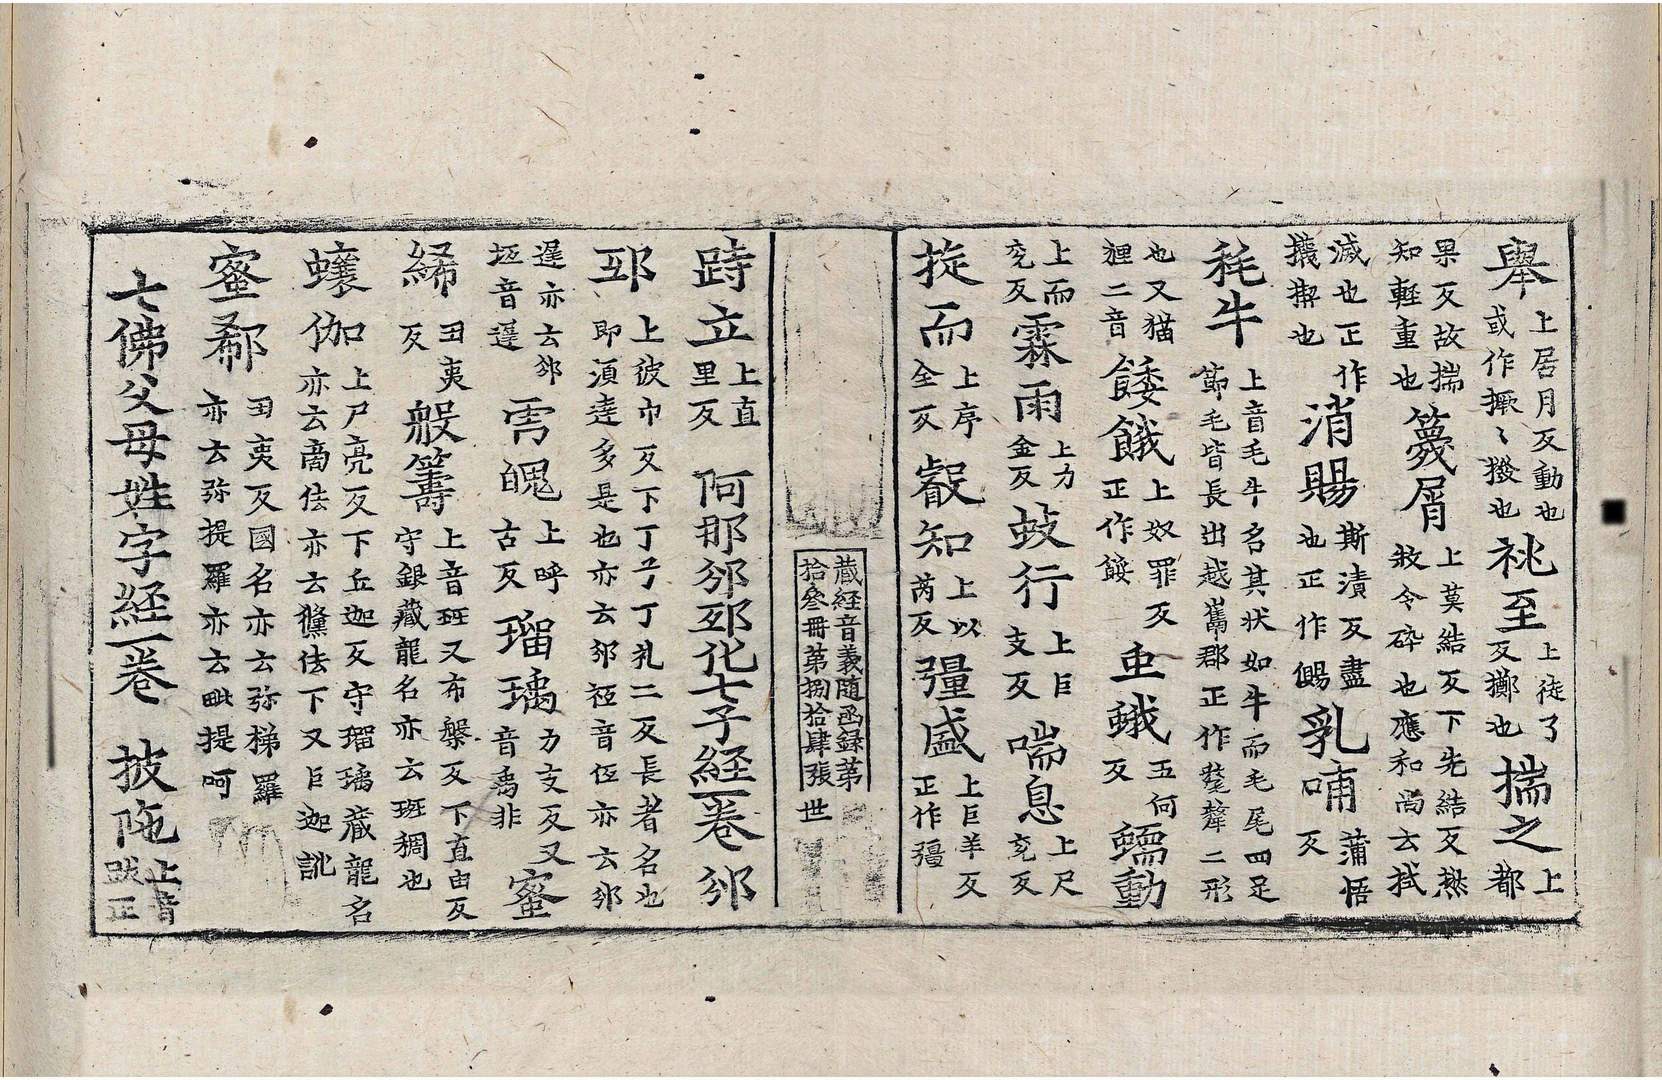 舉上居月反動也或作撅〻撥也祧至上徒了反擲也揣之上都
果反故揣知軽重也䉷屑上莫結反下先結反㸐敊令碎也應和尚云拭
滅也正作攕揳也消賜斯漬反盡也正作儩乳哺蒲悟反
秏牛上音毛牛名其状如牛而毛尾四足節毛皆長出越嶲郡正作氂犛二形
也又猫狸二音餧餓上奴罪反正作餒䖝蛾五何反蠕動
上而兖反霖雨上力金反蚑行上巨支反喘息上尺兖反
㨱而上序全反叡知上以芮反彊盛上巨羊反正作彊
藏経音義随函録苐
拾叄冊第捌拾肆張 世
跱立上直里反 阿那邠邳化七子経一卷 邠
邳上彼巾反下丁弓丁礼二反長者名也即湏達多是也亦云邠袛音伍亦云邠
遅亦云邠坻音遅雩䰟上呼古反瑠璃力支反又音禹非蜜
絺田夷反般籌上音班又布槃反下直由反守銀藏龍名亦云班稠也
蠰伽上尸亮反下丘迦反守瑠璃藏龍名亦云商佉亦云儴佉下又巨迦訛
蜜郗田夷反國名亦云弥梯羅亦云弥提羅亦云毗提呵
七佛父母姓字経一卷 披陁上音跋正